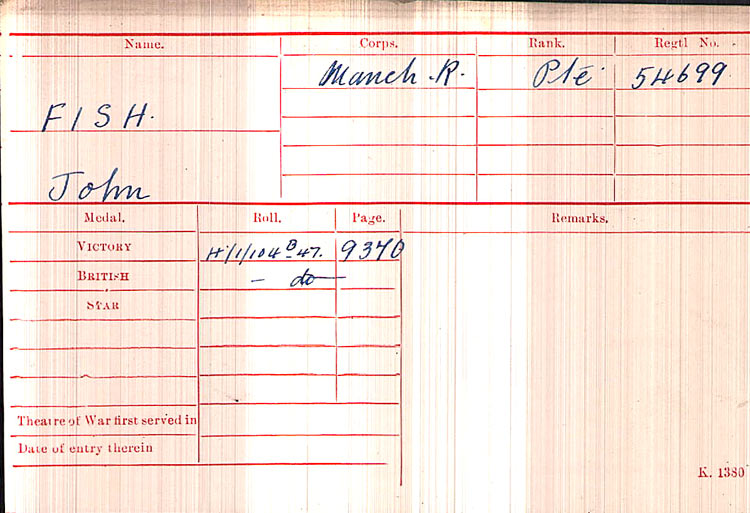 Name. Corps. Rank. Regtl No.
Manch. R. Pte 54699
FISH.
John
Medal. Roll. Page. Remarks.
VICTORY H/1/104 B 47. 9370
BRITISH - do -
STAR
Theatre of War first served in
Date of entry therein
K. 1380